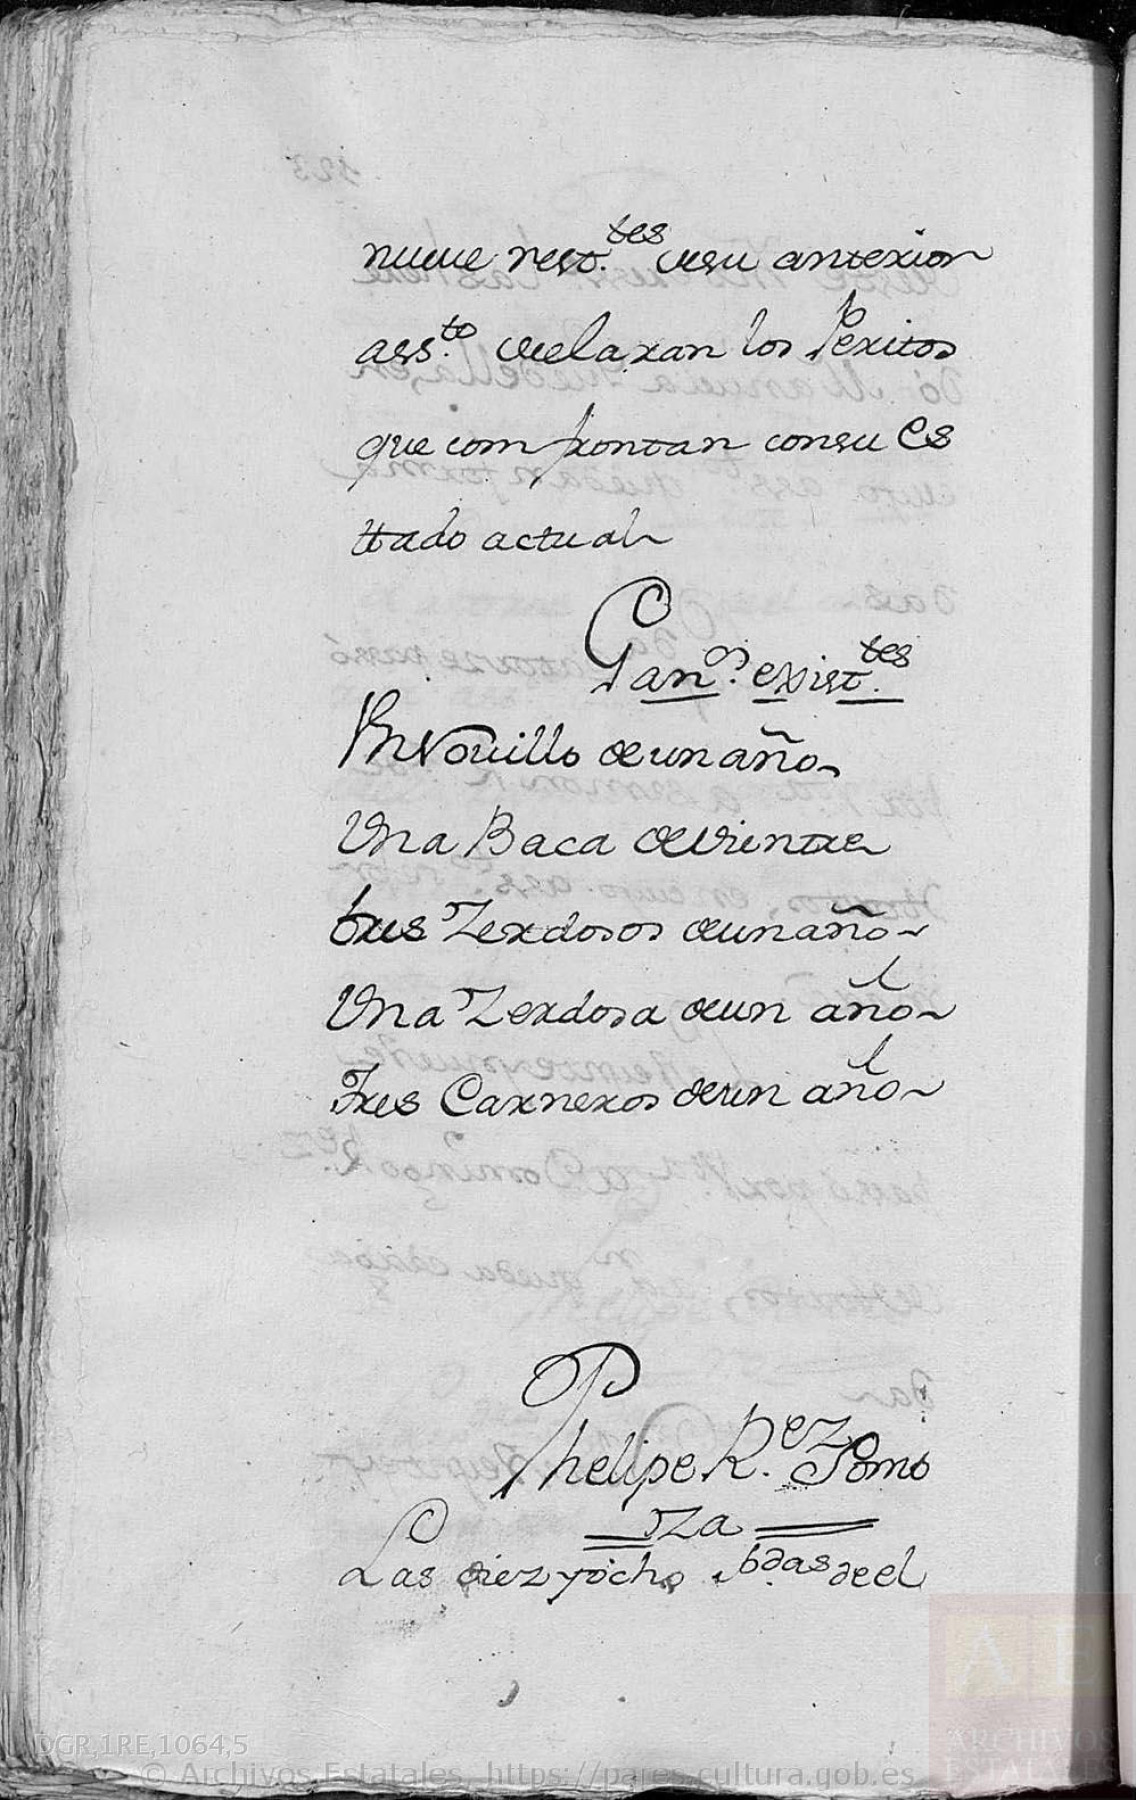 nueve rest.tes desu anterior
ass.to declaran los Peritos
que comfrontan consu Es
ttado actual
Gan.os exist.tes
Un Novillo de un año
Una Baca de vientre
tres Zerdosos de un año
Una Zerdosa de un año
Tres Carneros de un año
Phelipe R.ez Pomo
za
Las diez y ocho bdas de el
DGR,1RE,1064,5
© Archivos Estatales, https://pares.cultura.gob.es
AE
ARCHIVOS
ESTATALES